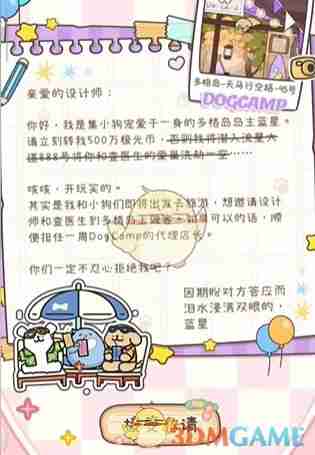 多格岛-天马行空路-45号
DOGCAMP
亲爱的设计师：
你好，我是集小狗宠爱于一身的多格岛岛主蓝星。
请立刻转我500万极光币，否则我将潜入流星大
道888号将你和查医生的
咳咳，开玩笑的。
其实是我和小狗们即将出发去旅游，想邀请设计
师和查医生到多格岛上做客。如果可以的话，顺
便担任一周DogCamp的代理店长。
你们一定不忍心拒绝我吧？
因期盼对方答应而
泪水浸满双眼的，
蓝星
接受邀请
3DMGAME